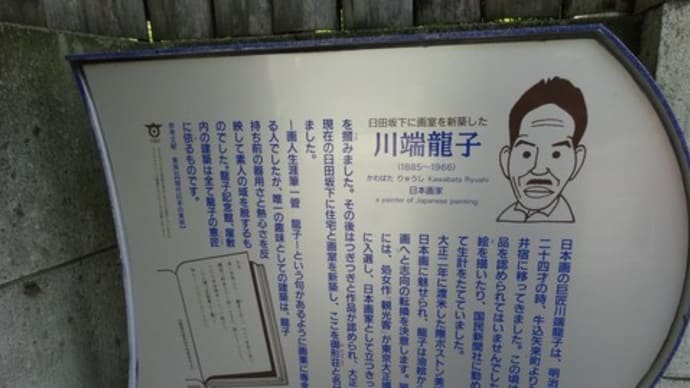 臼田坂下に画室を新築した
川端龍子
(1885〜1966)
かわばた りゅうし Kawabata Ryushi
日本画家
a painter of Japanese painting
日本画の巨匠川端龍子は、明治
二十四才の時、牛込矢来町より
井宿に移ってきました。この頃
品を認められてはいませんでし
絵を描いたり、国民新聞社に勤め
て生計をたてていました。
大正二年に渡米した際ボストン美
日本画に魅せられ、龍子は油絵か
画へと志向の転換を決意します。
には、処女作「観光客」が東京大正博
に入選し、日本画家として立つきっ
を掴みました。その後はつぎつぎと作品が認められ、大正
現在の臼田坂下に住宅と画室を新築し、ここを御形荘と名
ました。
―画人生涯筆一管 龍子―という句があるように画業に専念
る人でしたが、唯一の趣味としての建築は、龍子
持ち前の器用さと熱心さを反
映して素人の域を脱するも
のでした。龍子記念館、屋敷
内の建築は全て龍子の意匠
に依るものです。